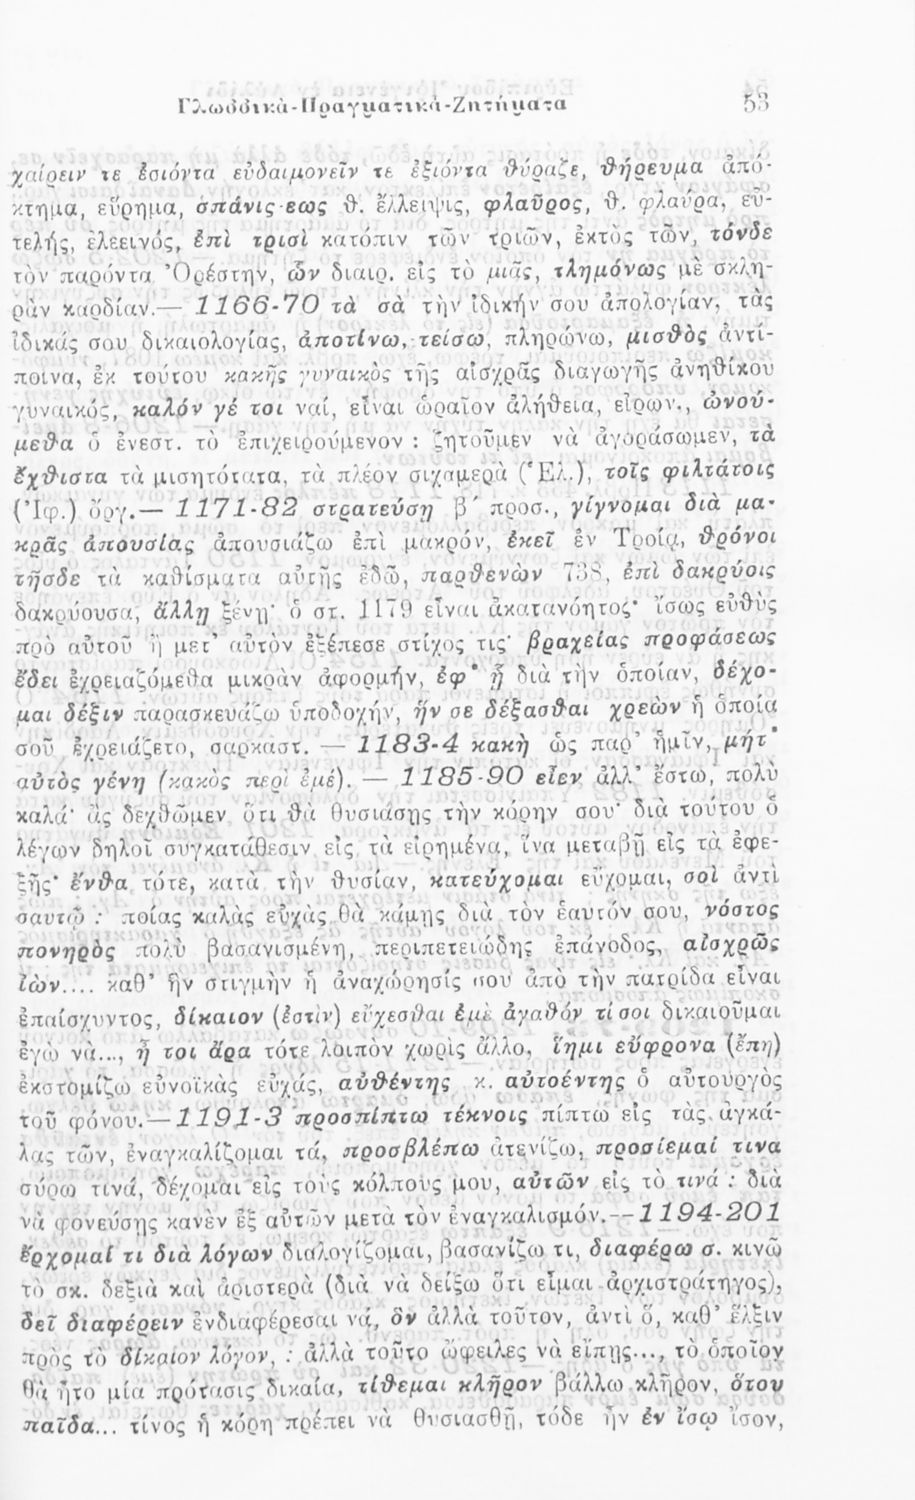 Γλωσσικὰ-Πραγματικὰ-Ζητήματα 53
χαίρειν τε ἐσιόντα εὐδαιμονεῖν τε ἐξιόντα θύραζε, θήρευμα ἀπό-
κτημα, εὕρημα, σπάνις-εως θ. ἔλλειψις, φλαῦρος, θ. φλαύρα, εὐ-
τελής, ἐλεεινός, ἐπὶ τρισὶ κατόπιν τῶν τριῶν, ἐκτὸς τῶν, τόνδε
τὸν παρόντα Ὀρέστην, ὧν διαιρ. εἰς τὸ μιᾶς, τλημόνως μὲ σκλη-
ρὰν καρδίαν.— 1166-70 τὰ σὰ τὴν ἰδικήν σου ἀπολογίαν, τὰς
ἰδικάς σου δικαιολογίας, ἀποτίνω, τείσω, πληρώνω, μισθὸς ἀντί-
ποινα, ἐκ τούτου κακῆς γυναικὸς τῆς αἰσχρᾶς διαγωγῆς ἀνηθίκου
γυναικός, καλόν γέ τοι ναί, εἶναι ὡραῖον ἀλήθεια, εἰρων., ὠνού-
μεθα ὁ ἐνεστ. τὸ ἐπιχειρούμενον : ζητοῦμεν νὰ ἀγοράσωμεν, τὰ
ἔχθιστα τὰ μισητότατα, τὰ πλέον σιχαμερὰ (Ἑλ.), τοῖς φιλτάτοις
(Ἰφ.) ὄργ.— 1171-82 στρατεύσῃ β΄ προσ., γίγνομαι διὰ μα-
κρᾶς ἀπουσίας ἀπουσιάζω ἐπὶ μακρόν, ἐκεῖ ἐν Τροίᾳ, θρόνοι
τῆσδε τὰ καθίσματα αὐτῆς ἐδῶ, παρθενὼν 738, ἐπὶ δακρύοις
δακρύουσα, ἄλλῃ ξένῃ· ὁ στ. 1179 εἶναι ἀκατανόητος· ἴσως εὐθὺς
πρὸ αὐτοῦ ἢ μετ' αὐτὸν ἐξέπεσε στίχος τις· βραχείας προφάσεως
ἔδει ἐχρειαζόμεθα μικρὰν ἀφορμήν, ἐφ' ᾗ διὰ τὴν ὁποίαν, δέχο-
μαι δέξιν παρασκευάζω ὑποδοχήν, ἥν σε δέξασθαι χρεὼν ἡ ὁποία
σοῦ ἐχρειάζετο, σαρκαστ. — 1183-4 κακὴ ὡς παρ' ἡμῖν, μήτ'
αὐτὸς γένῃ (κακὸς περὶ ἐμέ). — 1185-90 εἶεν ἀλλ' ἔστω, πολὺ
καλά· ἂς δεχθῶμεν ὅτι θὰ θυσιάσῃς τὴν κόρην σου· διὰ τούτου ὁ
λέγων δηλοῖ συγκατάθεσιν εἰς τὰ εἰρημένα, ἵνα μεταβῇ εἰς τὰ ἐφε-
ξῆς· ἔνθα τότε, κατὰ τὴν θυσίαν, κατεύχομαι εὔχομαι, σοὶ ἀντὶ
σαυτῷ : ποίας καλὰς εὐχὰς θὰ κάμῃς διὰ τὸν ἑαυτόν σου, νόστος
πονηρὸς πολὺ βασανισμένη, περιπετειώδης ἐπάνοδος, αἰσχρῶς
ἰὼν.... καθ' ἣν στιγμὴν ἡ ἀναχώρησίς σου ἀπὸ τὴν πατρίδα εἶναι
ἐπαίσχυντος, δίκαιον (ἐστὶν) εὔχεσθαι ἐμὲ ἀγαθόν τί σοι δικαιοῦμαι
ἐγὼ νὰ..., ἦ τοι ἄρα τότε λοιπὸν χωρὶς ἄλλο, ἵημι εὔφρονα (ἔπη)
ἐκστομίζω εὐνοϊκὰς εὐχάς, αὐθέντης κ. αὐτοέντης ὁ αὐτουργὸς
τοῦ φόνου.—1191-3 προσπίπτω τέκνοις πίπτω εἰς τὰς ἀγκά-
λας τῶν, ἐναγκαλίζομαι τά, προσβλέπω ἀτενίζω, προσίεμαί τινα
σύρω τινά, δέχομαι εἰς τοὺς κόλπους μου, αὐτῶν εἰς τὸ τινά : διὰ
νὰ φονεύσῃς κανὲν ἐξ αὐτῶν μετὰ τὸν ἐναγκαλισμόν.—1194-201
ἔρχομαί τι διὰ λόγων διαλογίζομαι, βασανίζω τι, διαφέρω σ. κινῶ
τὸ σκ. δεξιὰ καὶ ἀριστερὰ (διὰ νὰ δείξω ὅτι εἶμαι ἀρχιστράτηγος),
δεῖ διαφέρειν ἐνδιαφέρεσαι νά, ὃν ἀλλὰ τοῦτον, ἀντὶ ὅ, καθ' ἕλξιν
πρὸς τὸ δίκαιον λόγον, : ἀλλὰ τοῦτο ὤφειλες νὰ εἴπῃς..., τὸ ὁποῖον
θὰ ἦτο μία πρότασις δικαία, τίθεμαι κλῆρον βάλλω κλῆρον, ὅτου
παῖδα... τίνος ἡ κόρη πρέπει νὰ θυσιασθῇ, τόδε ἦν ἐν ἴσῳ ἴσον,